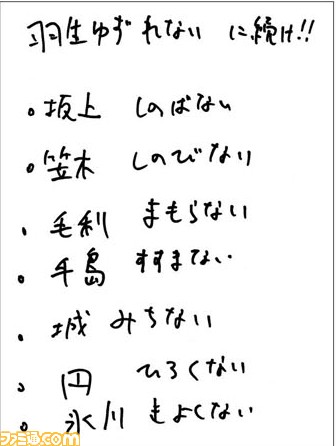 羽生ゆずれない に続け!!
・坂上 しのばない
・笠木 しのびない
・毛利 まもらない
・手島 すすまない
・城 みちない
・円 ひろくない
・氷川 きよくない
ファミ通.com